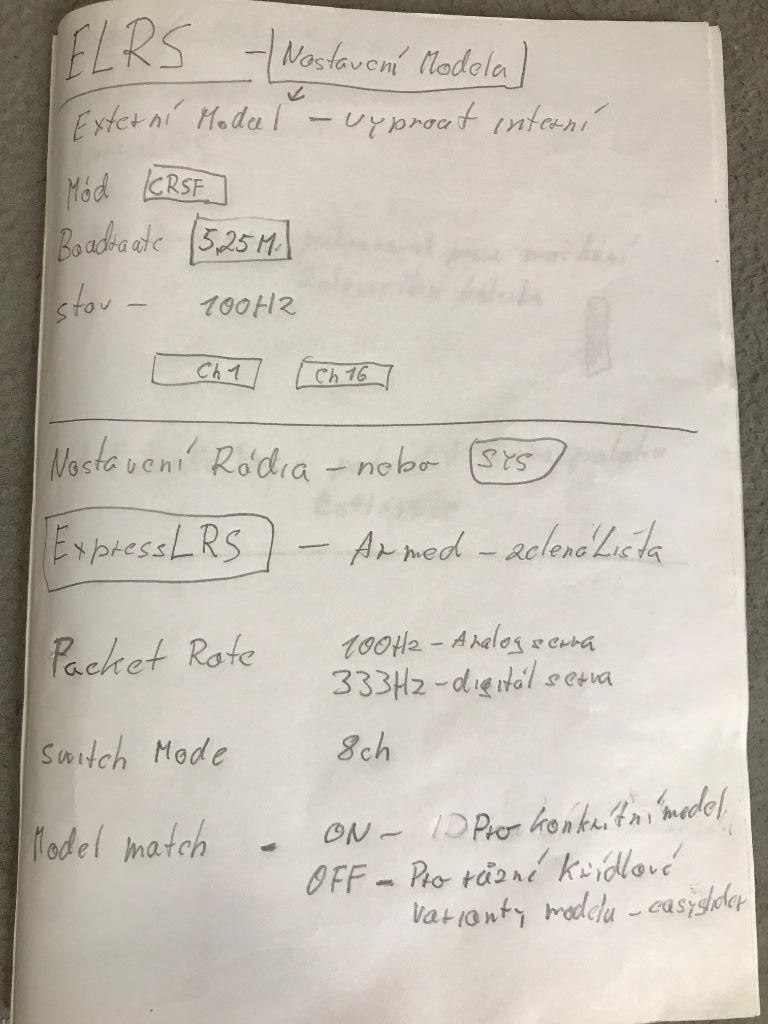 ELRS - Nastavení Modela
Externí Modul - vypnout interní
Mód CRSF
Baadraate 5,25M.
stav - 100Hz
Ch1 Ch16
Nastavení Rádia - nebo SYS
ExpressLRS - Armed - zelená Lista
Packet Rate 100Hz - Analog serva
333Hz - digitál serva
Switch Mode 8ch
Model match - ON - ID Pro konkrítní model
OFF - Pro různé Křídlové
varianty modelu -